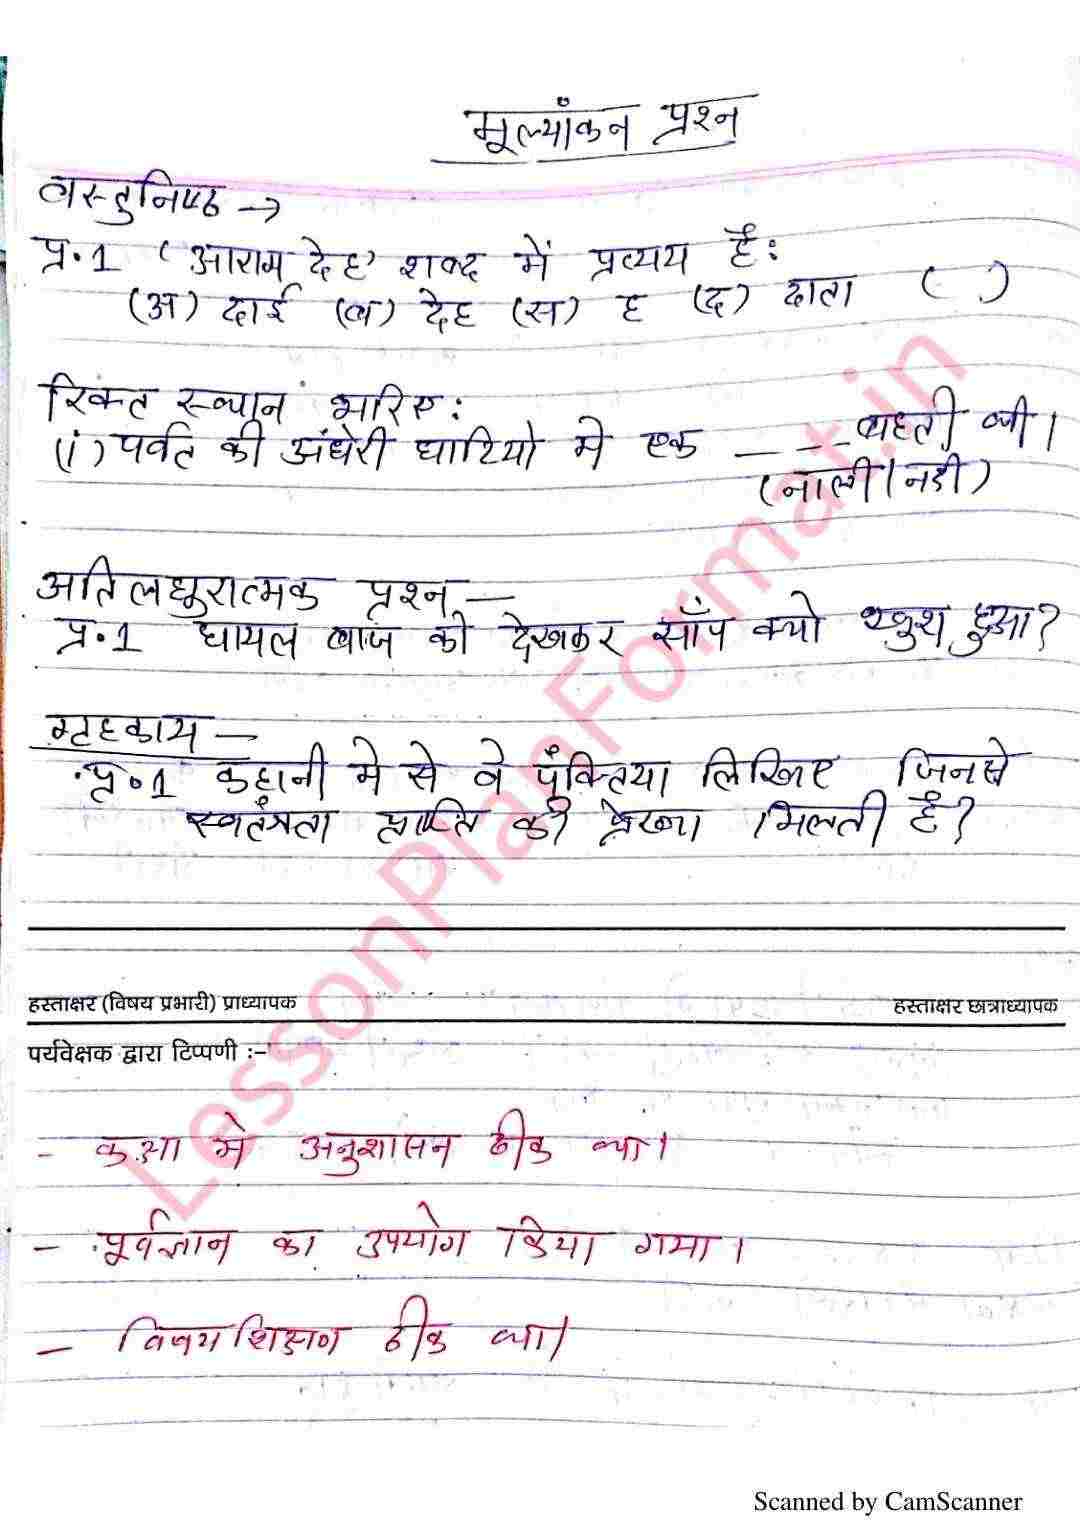 मूल्यांकन प्रश्न
वस्तुनिष्ठ →
प्र.1 'आराम देह' शब्द में प्रत्यय है:
(अ) दाई (ब) देह (स) ह (द) दाता ( )
रिक्त स्थान भरिए:
(i) पर्वत की अंधेरी घाटियो मे एक - - - - बहती थी।
(नाली/नदी)
अतिलघुरात्मक प्रश्न —
प्र.1 घायल बाज को देखकर साँप क्यो खुश हुआ?
गृहकाय —
प्र.1 कहानी मे से वे पंक्तिया लिखिए जिनसे
स्वतंत्रता प्राप्ति की प्रेरणा मिलती है?
हस्ताक्षर (विषय प्रभारी) प्राध्यापक हस्ताक्षर छात्राध्यापक
पर्यवेक्षक द्वारा टिप्पणी :-
- कक्षा मे अनुशासन ठीक था।
- पूर्वज्ञान का उपयोग किया गया।
- विषय शिक्षण ठीक था।
LessonPlanFormat.in
Scanned by CamScanner